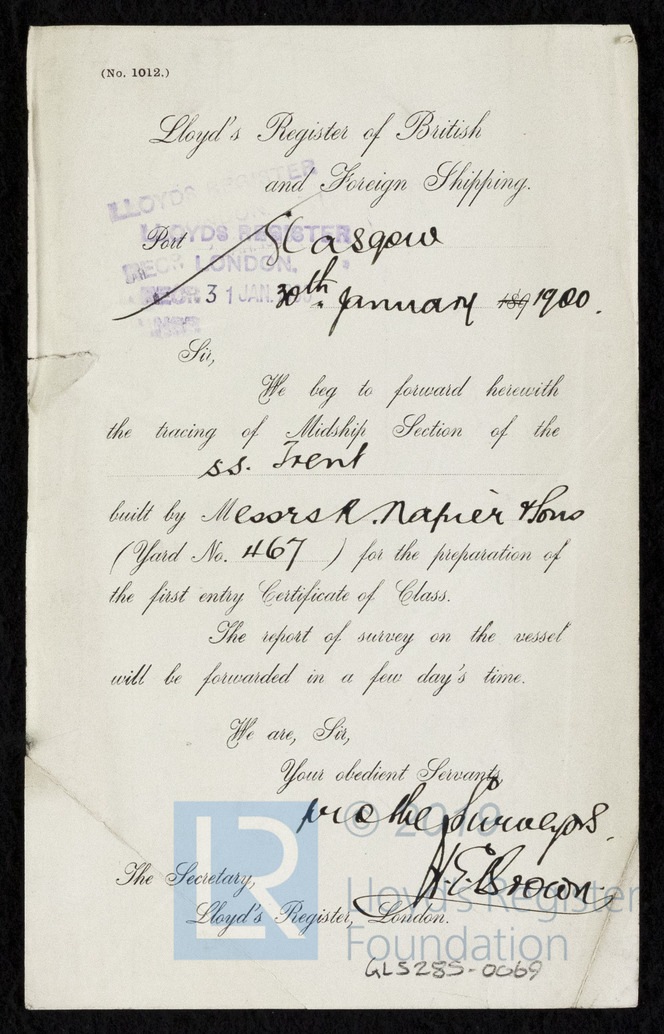 (No. 1012.)
Lloyd's Register of British
and Foreign Shipping.
LLOYDS REGISTER
LONDON.
RECR 31 JAN.
Port Glasgow
30th January 189 1900.
Sir,
We beg to forward herewith
the tracing of Midship Section of the
ss. Trent
built by Messrs R. Napier & Sons
(Yard No. 467) for the preparation of
the first entry Certificate of Class.
The report of survey on the vessel
will be forwarded in a few day's time.
We are, Sir,
Your obedient Servants,
pro the Surveyors.
H.E. Brown
The Secretary,
Lloyd's Register, London.
© 2019
LR
Lloyd's Register
Foundation
GLS285-0069